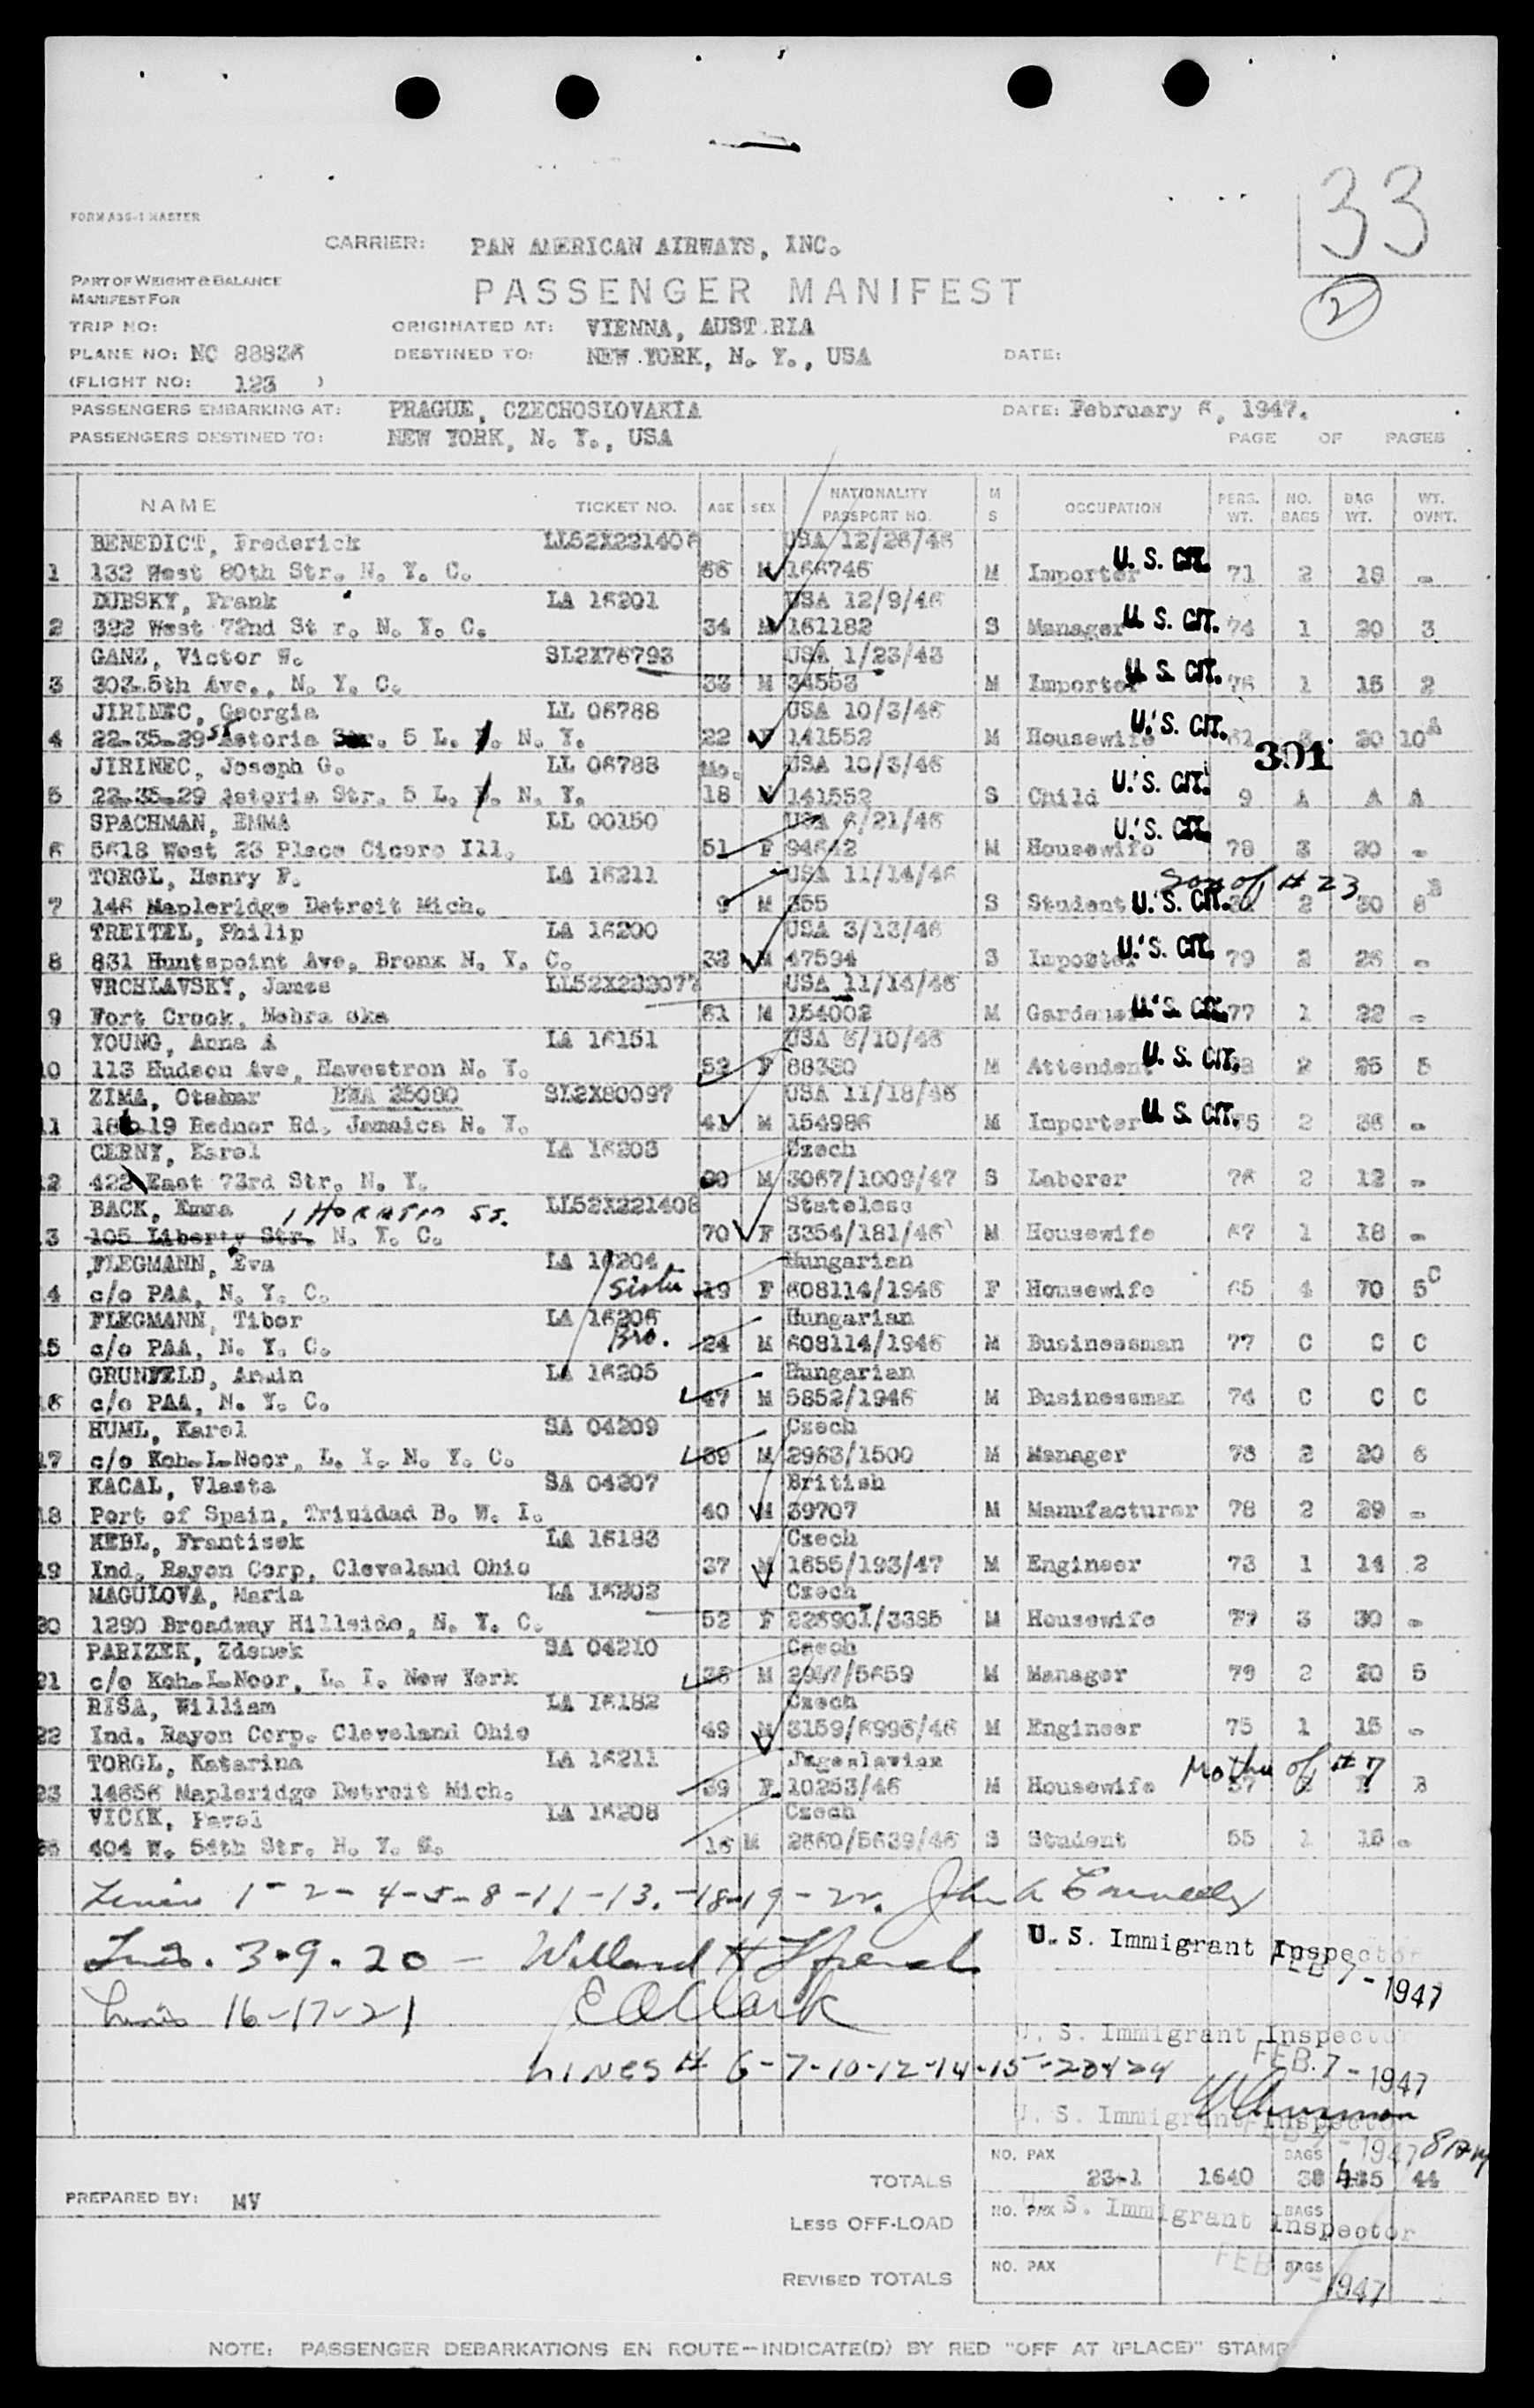 33
FORM A36-1 MASTER
CARRIER: PAN AMERICAN AIRWAYS, INC.
PART OF WEIGHT & BALANCE
MANIFEST FOR
PASSENGER MANIFEST
2
TRIP NO: ORIGINATED AT: VIENNA, AUST RIA
PLANE NO: NC 88836 DESTINED TO: NEW YORK, N. Y., USA DATE:
(FLIGHT NO: 123 )
PASSENGERS EMBARKING AT: PRAGUE, CZECHOSLOVAKIA DATE: February 6, 1947.
PASSENGERS DESTINED TO: NEW YORK, N. Y., USA PAGE OF PAGES
NAME TICKET NO. AGE SEX NATIONALITY PASSPORT NO. M S OCCUPATION PERS. WT. NO. BAGS BAG WT. WT. OVHT.
BENEDICT, Frederick LL52X221406 USA 12/26/46
1 132 West 80th Str. N. Y. C. M 166746 M Importer U. S. CIT. 71 2 18 -
DUBSKY, Frank LA 16201 USA 12/9/46
2 322 West 72nd St r. N. Y. C. 34 M 161182 S Manager U. S. CIT. 74 1 20 3
GANZ, Victor W. SL2X76793 USA 1/23/43
3 303-5th Ave., N. Y. C. 33 M 34553 M Importer U. S. CIT. 76 1 15 2
JIRINEC, Georgia LL 06788 USA 10/3/46
4 22-35-29 Astoria 5 L. N. Y. 22 F 141552 M Housewife U. S. CIT. 61 20 10 A
391
JIRINEC, Joseph G. LL 06788 Mo. USA 10/3/46
5 22-35-29 Astoria Str. 5 L. N. Y. 18 M 141552 S Child U. S. CIT. 9 A A A
SPACHMAN, EMMA LL 00150 USA 6/21/46
6 5618 West 23 Place Cicero Ill. 51 F 94642 M Housewife U. S. CIT. 78 3 30 -
TORGL, Henry F. LA 16211 USA 11/14/46 Son of # 23
7 146 Mapleridge Detroit Mich. 9 M 355 S Student U. S. CIT. 2 30 6 B
TREITEL, Philip LA 16200 USA 3/13/46
8 831 Huntspoint Ave, Bronx N. Y. C. 33 M 47594 S Importer U. S. CIT. 79 2 26 -
VRCHLAVSKY, James LL52X232077 USA 11/14/46
9 Fort Crook, Nebra ska 61 M 154002 M Gardener U. S. CIT. 77 1 22 -
YOUNG, Anna A LA 16151 USA 6/10/46
10 113 Hudson Ave, Havestron N. Y. 52 F 88330 M Attendent U. S. CIT. 2 25 5
ZIMA, Otakar BWA 25080 SL2X80097 USA 11/18/46
11 19 Rednor Rd, Jamaica N. Y. 41 M 154986 M Importer U. S. CIT. 2 36 -
CERNY, Karel LA 16203 Czech
12 422 East 73rd Str, N. Y. M 3067/1009/47 S Laborer 76 2 12 -
BACK, Emma 1 HORATIO ST. LL52X221408 Stateless
13 105 Liberty Str. N. Y. C. 70 F 3354/181/46 M Housewife 67 1 18 -
FLEGMANN, Eva LA 16204 Hungarian
14 c/o PAA, N. Y. C. Sister 19 F 608114/1946 F Housewife 65 4 70 5 C
FLEGMANN, Tibor LA 16206 Hungarian
15 c/o PAA, N. Y. C. Bro. 24 M 608114/1946 M Businessman 77 C C C
GRUNFELD, Armin LA 16205 Hungarian
16 c/o PAA, N. Y. C. 47 M 5852/1946 M Businessman 74 C C C
HUML, Karel SA 04209 Czech
17 c/o Koh-I-Noor, L. I. N. Y. C. 39 M 2963/1500 M Manager 78 2 20 6
KACAL, Vlasta SA 04207 British
18 Port of Spain, Trinidad B. W. I. 40 M 39707 M Manufacturer 78 2 29 -
KEBL, Frantisek LA 16183 Czech
19 Ind. Rayon Corp, Cleveland Ohio 37 M 1655/193/47 M Engineer 73 1 14 2
MAGULOVA, Maria LA 16202 Czech
20 1290 Broadway Hillside, N. Y. C. 52 F 226901/3385 M Housewife 77 3 30 -
PARIZEK, Zdenek SA 04210 Czech
21 c/o Koh-I-Noor, L. I. New York 36 M 2997/5659 M Manager 79 2 20 5
RISA, William LA 16182 Czech
22 Ind. Rayon Corp. Cleveland Ohio 49 M 3159/6996/46 M Engineer 75 1 15 -
TORGL, Katarina LA 16211 Jugoslavian Mother of # 7
23 14656 Mapleridge Detroit Mich. 39 F 10253/46 M Housewife 57 B
VICIK, Pavel LA 16208 Czech
404 W. 54th Str. N. Y. C. 16 M 2660/5639/46 S Student 55 1 15 -
Lines 1-2-4-5-8-11-13-18-19-22. John A Connelly
U. S. Immigrant Inspector
Lines. 3-9-20 - Willard H
FEB 7-1947
Lines 16-17-21 E A Clark
U. S. Immigrant Inspector
LINES # 6-7-10-12-14-15-23+24
FEB. 7-1947
U. S. Immigrant Inspector
FEB 7-1947 8 PM
TOTALS NO. PAX 23-1 1640 BAGS 38 485 44
PREPARED BY: MV
LESS OFF-LOAD NO. PAX BAGS
U. S. Immigrant Inspector
REVISED TOTALS NO. PAX BAGS
FEB 7-1947
NOTE: PASSENGER DEBARKATIONS EN ROUTE—INDICATE(D) BY RED "OFF AT (PLACE)" STAMP